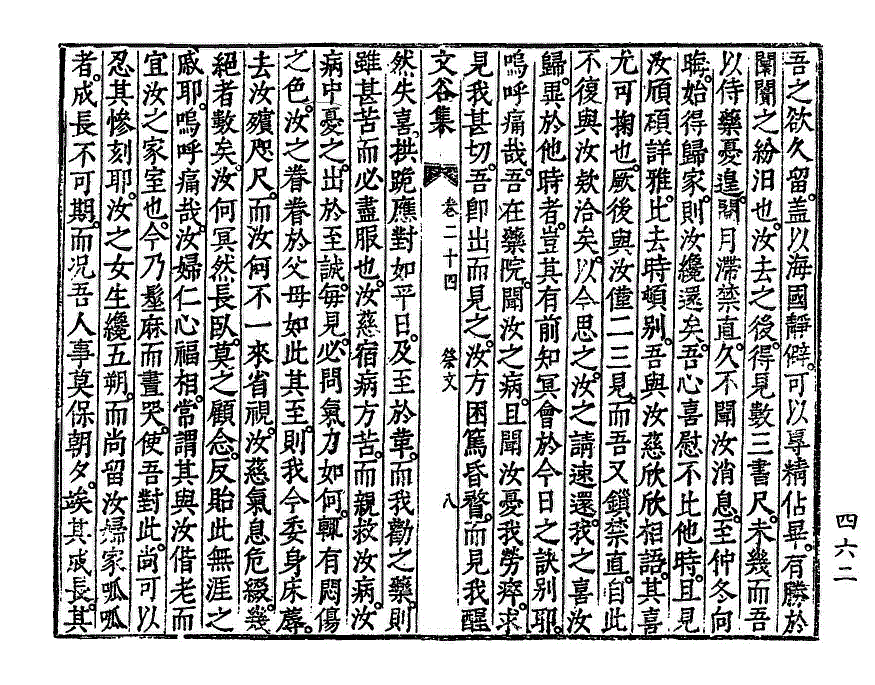 吾之欲久留。盖以海國靜僻。可以專精佔畢。有勝於
闤闠之紛汨也。汝去之後。得見數三書尺。未幾而吾
以侍藥憂遑。閱月滯禁直。久不聞汝消息。至仲冬向
晦。始得歸家。則汝纔還矣。吾心喜慰不比他時。且見
汝頎碩詳雅。比去時頓別。吾與汝慈欣欣相語。其喜
尤可掬也。厥後與汝僅二三見。而吾又鎖禁直。自此
不復與汝欸洽矣。以今思之。汝之請速還。我之喜汝
歸。異於他時者。豈其有前知冥會於今日之訣別耶。
嗚呼痛哉。吾在藥院。聞汝之病。且聞汝憂我勞瘁。求
見我甚切。吾卽出而見之。汝方困篤昏瞀。而見我醒
文谷集 卷二十四 祭文 八
然失喜。拱跪應對如平日。及至於革。而我勸之藥。則
雖甚苦而必盡服也。汝慈宿病方苦。而親救汝病。汝
病中憂之。出於至誠。每見。必問氣力如何。輒有悶傷
之色。汝之眷眷於父母如此其至。則我今委身床蓐。
去汝殯咫尺。而汝何不一來省視。汝慈氣息危綴。幾
絕者數矣。汝何冥然長臥。莫之顧念。反貽此無涯之
慼耶。嗚呼痛哉。汝婦仁心福相。常謂其與汝偕老而
宜汝之家室也。今乃髽麻而晝哭。使吾對此。尚可以
忍其慘刻耶。汝之女生纔五朔。而尚留汝婦家。呱呱
者。成長不可期。而况吾人事莫保朝夕。竢其成長。其
四六二